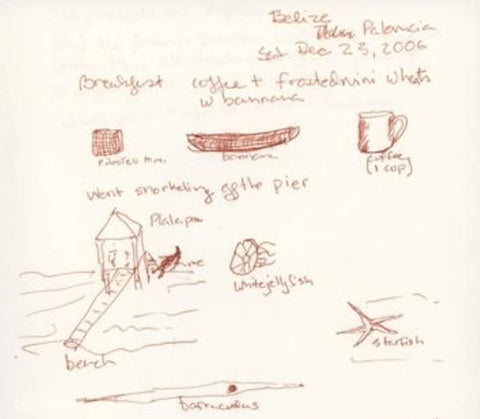 Belize
Palancia
Sat Dec 23, 2006
Breakfast coffee + frosted mini wheats
w bannana
Frosted mini
bannana
coffee
[1 cop]
Went snorkeling off the pier
Plalapa
me
white jelly fish
starfish
beach
barracudas